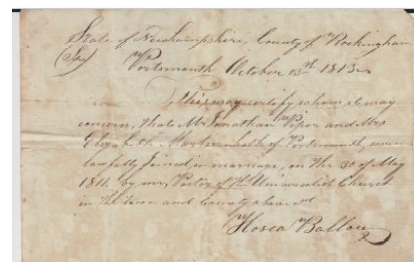 State of Newhampshire, County of Rockingham
Portsmouth October 13th. 1813.
This may certify whom it may
concern, that Mr. Jonathan Piper and Mrs
Elizabeth of Portsmouth, were
lawfully joined in marriage, on the 30 of May
1811. by me, Pastor of the Universalist Church
in the town and County above
Hosea Ballou